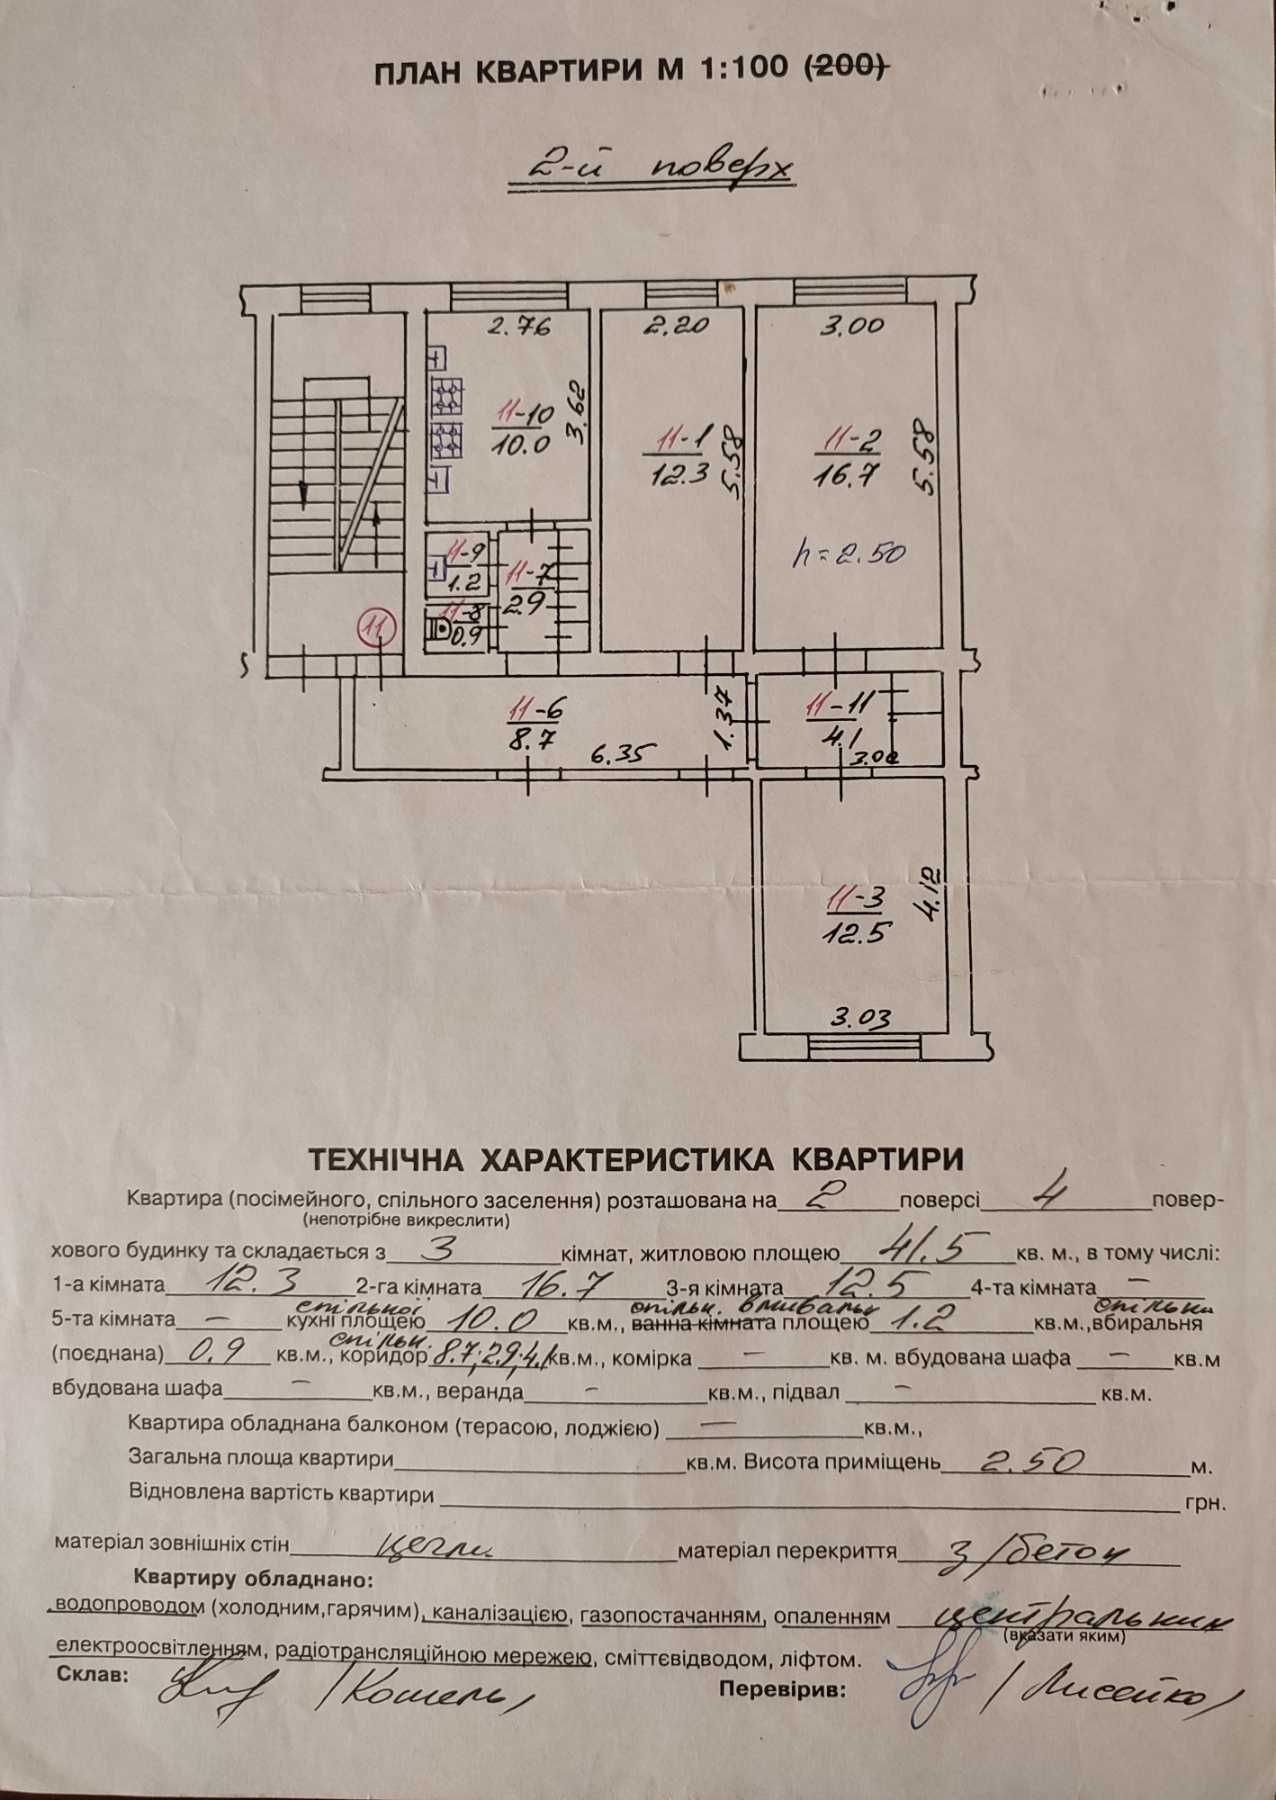 ПЛАН КВАРТИРИ М 1:100 (200)
2-й поверх
2.76 2.20 3.00
3.62
11-10
10.0
11-1
12.3
5.58
11-2
16.7
5.58
h=2.50
11-9
1.2
11-7
2.9
11-8
0.9
11
11-6
8.7
6.35
1.37
11-11
4.1
11-3
12.5
4.12
3.03
ТЕХНІЧНА ХАРАКТЕРИСТИКА КВАРТИРИ
Квартира (посімейного, спільного заселення) розташована на 2 поверсі 4 повер-
(непотрібне викреслити)
хового будинку та складається з 3 кімнат, житловою площею 41.5 кв. м., в тому числі:
1-а кімната 12.3 2-га кімната 16.7 3-я кімната 12.5 4-та кімната —
спільної спільн. вмивальн спільна
5-та кімната — кухні площею 10.0 кв.м., ванна кімната площею 1.2 кв.м.,вбиральня
спільн.
(поєднана) 0.9 кв.м., коридор 8.7; 2.9; 4.1 кв.м., комірка — кв. м. вбудована шафа — кв.м
вбудована шафа — кв.м., веранда — кв.м., підвал — кв.м.
Квартира обладнана балконом (терасою, лоджією) — кв.м.,
Загальна площа квартири кв.м. Висота приміщень 2.50 м.
Відновлена вартість квартири грн.
матеріал зовнішніх стін матеріал перекриття з/бетон
Квартиру обладнано:
водопроводом (холодним,гарячим), каналізацією, газопостачанням, опаленням центральним
(вказати яким)
електроосвітленням, радіотрансляційною мережею, сміттєвідводом, ліфтом.
Склав: /Кошель/ Перевірив: /Лисейко/